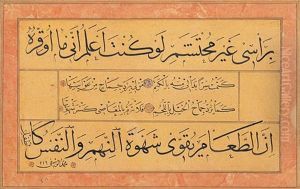 بِرَاسِى غَيْرِ مُحْتَشِمِ لَوْ كُنْتُ اَعْلَمُ اَنِّى مَا اُوَقِّرُهُ
كتمت سرا بدا لى منه بالكتم من لى برد جماح من غوايتها
كما يرد جماح الخيل باللجم فلا ترم بالمعاصى كسر شهوتها
اِنَّ الطَّعَامَ يُقَوِّى شَهْوَةَ النَّهِمِ وَالنَّفْسُ كَا